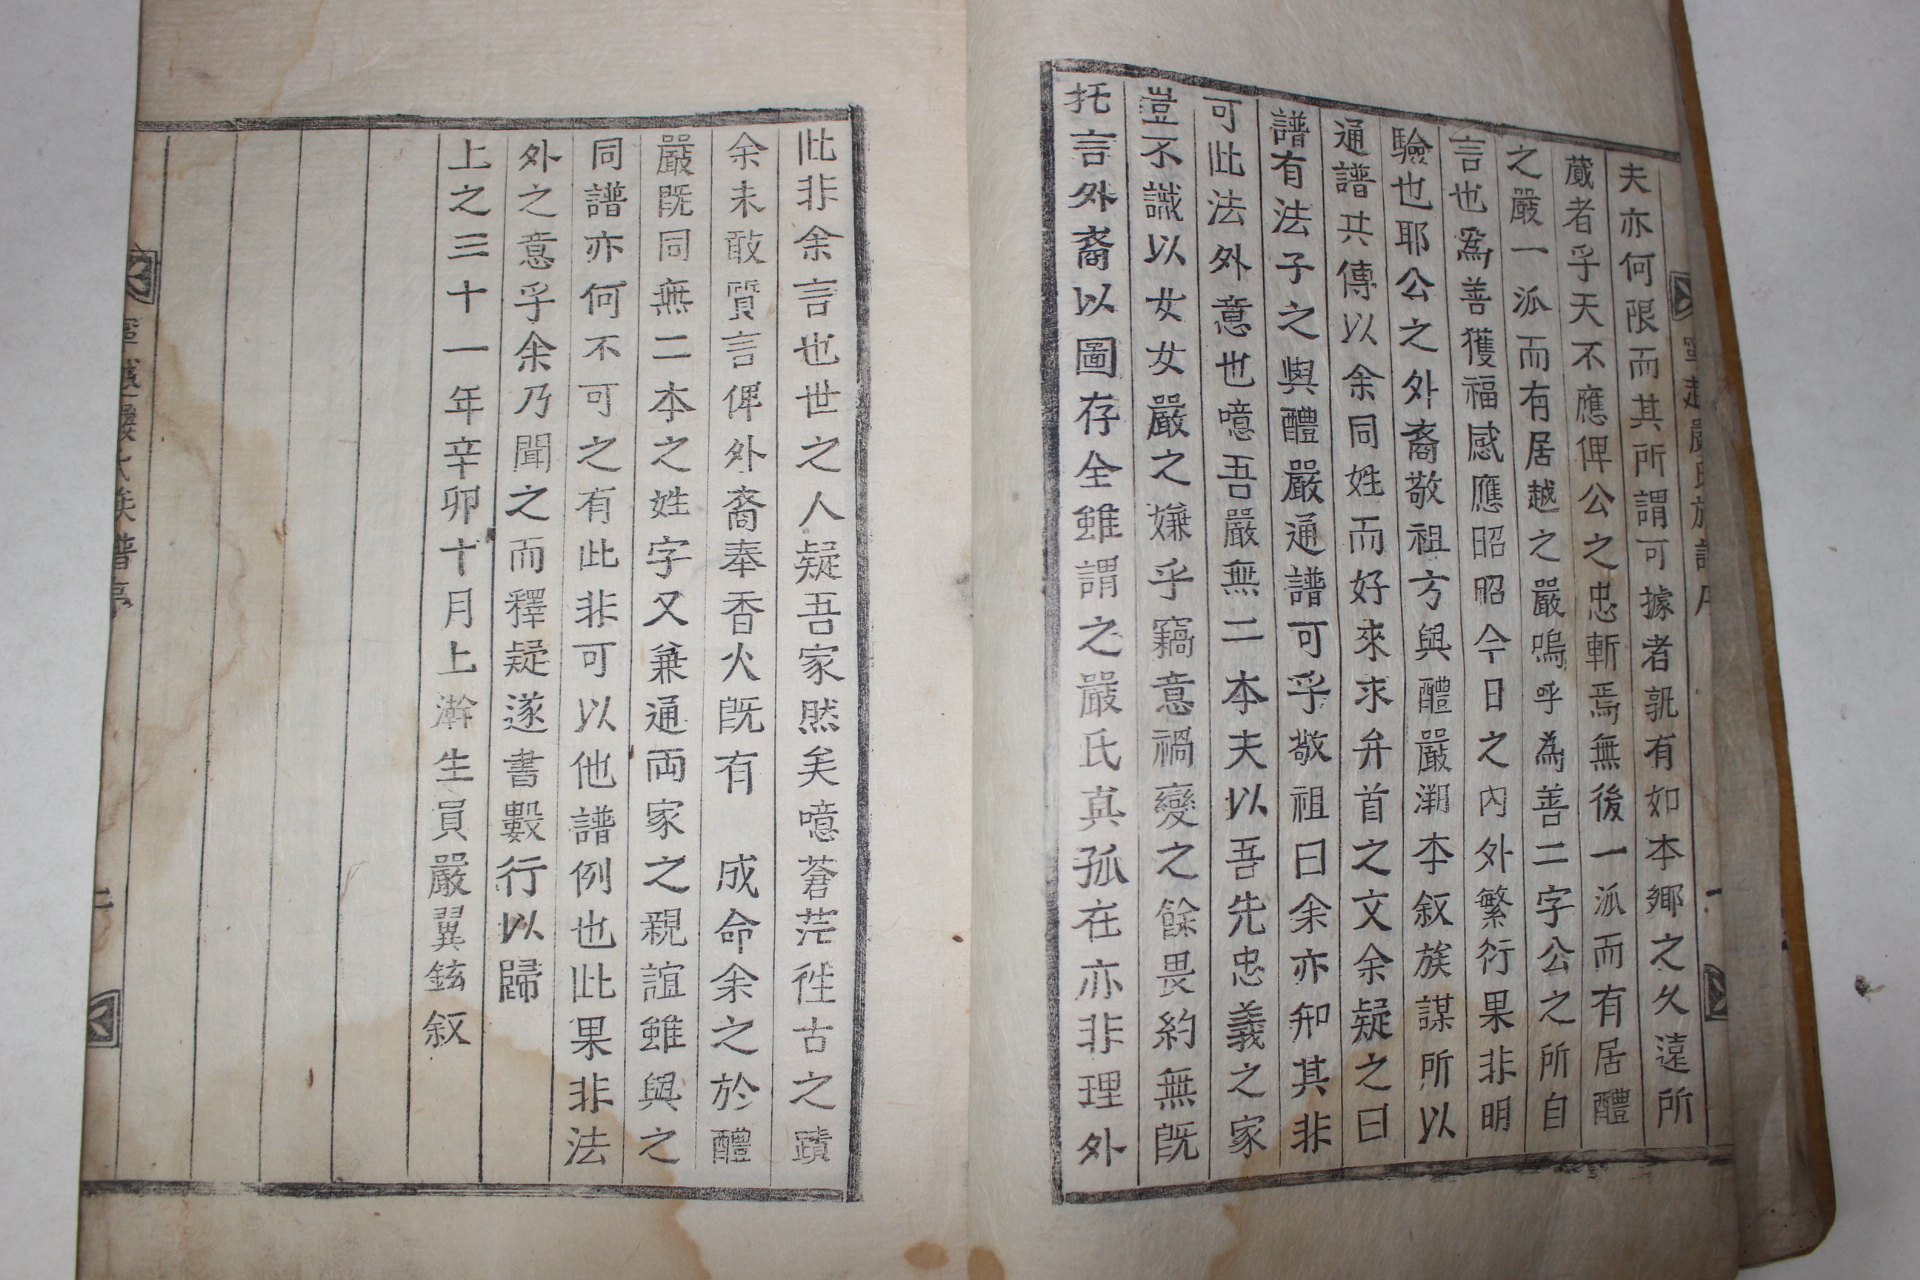 夫亦何限而其所謂可據者孰有如本鄉之久遠所
蕆者乎天不應俾公之忠斬焉無後一派而有居醴
之嚴一派而有居越之嚴嗚呼為善二字公之所自
言也爲善獲福感應昭昭今日之內外繁衍果非明
驗也耶公之外裔敬祖方與醴嚴溯本叙族謀所以
通譜共傳以余同姓而好來求弁首之文余疑之曰
譜有法子之與醴嚴通譜可乎敬祖曰余亦知其非
可此法外意也噫吾嚴無二本夫以吾先忠義之家
豈不識以女女嚴之嫌乎竊意禍變之餘畏約無既
托言外裔以圖存全雖謂之嚴氏真孤在亦非理外
寧越嚴氏族譜序
此非余言也世之人疑吾家然矣噫蒼茫徃古之蹟
余未敢質言俾外裔奉香火既有 成命余之於醴
嚴既同無二本之姓字又兼通両家之親誼雖與之
同譜亦何不可之有此非可以他譜例也此果非法
外之意乎余乃聞之而釋疑遂書數行以歸
上之三十一年辛卯十月上澣生員嚴翼鉉叙
寧越嚴氏族譜序
二